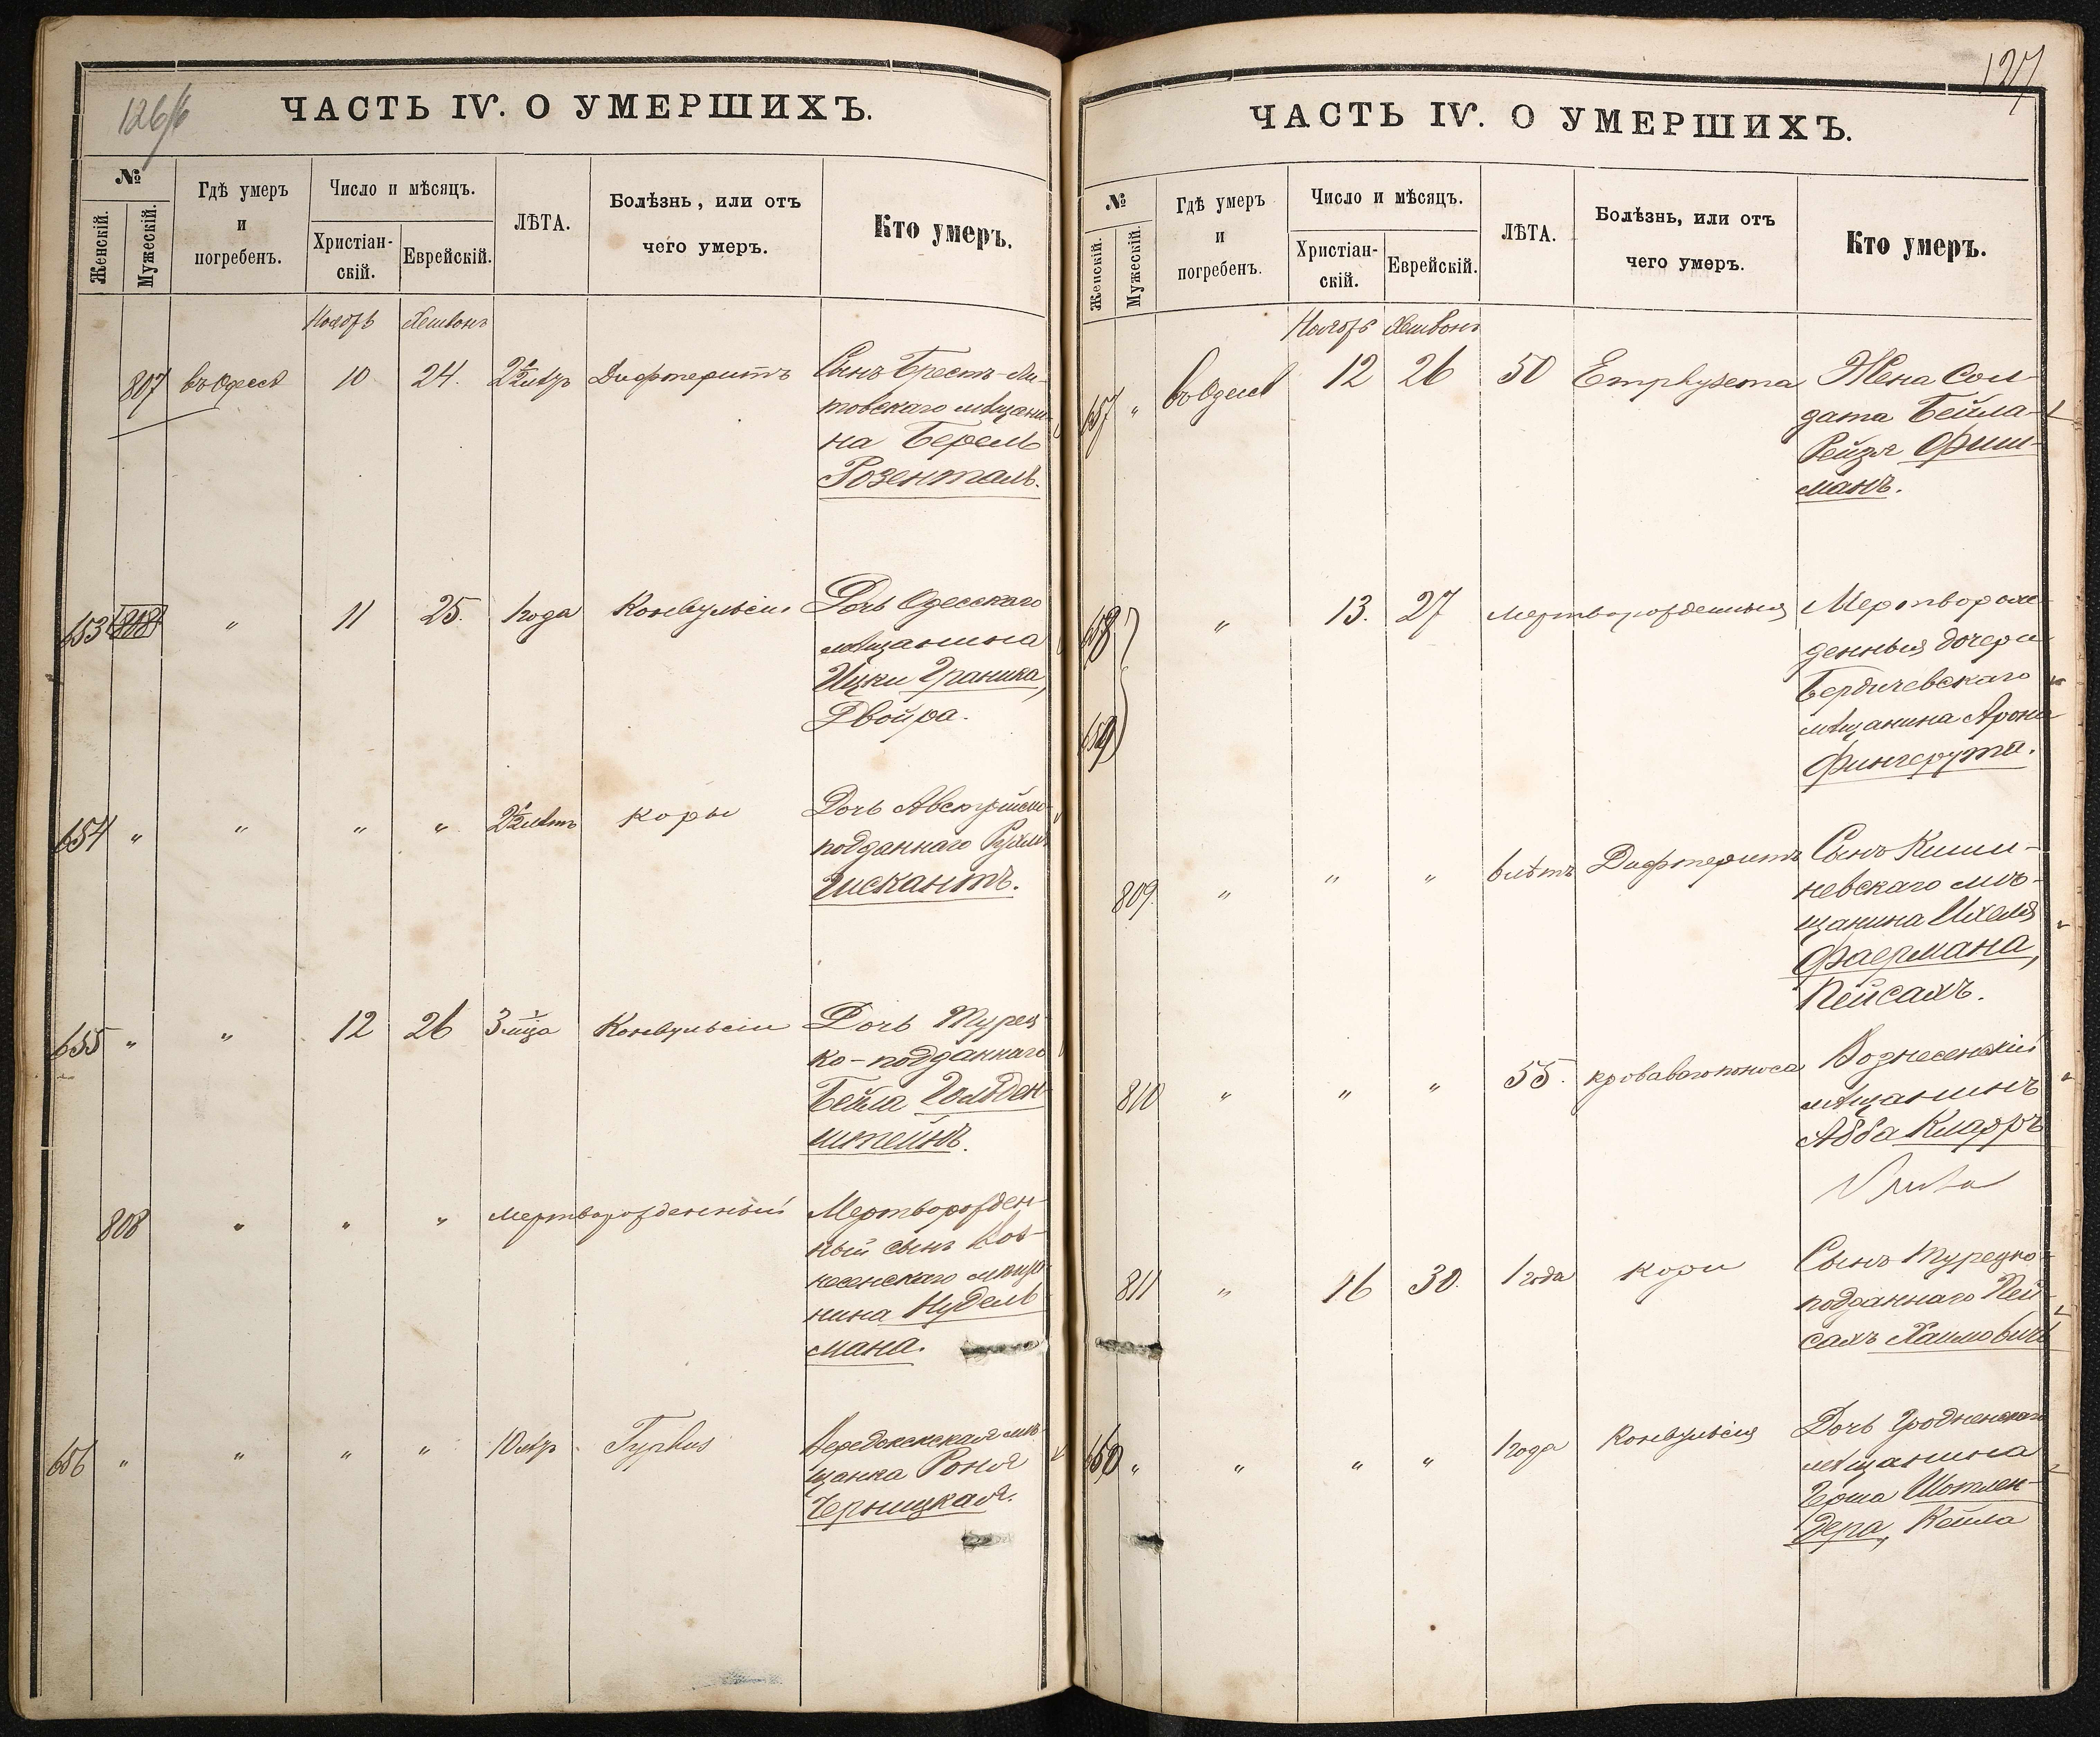 126/б
ЧАСТЬ IV. О УМЕРШИХЪ.
№
Женскій.
Мужескій.
Гдѣ умеръ
и
погребенъ.
Число и мѣсяцъ.
Христіан-
скій.
Еврейскій.
ЛѢТА.
Болѣзнь, или отъ
чего умеръ.
Кто умеръ.
Ноябрь Хешвонъ
807 въ Одессѣ 10 24. 2½ лѣтъ Дифтеритъ Сынъ Брестъ-Ли-
товскаго мѣщани-
на Берель
Розенталь.
653 808 " 11 25. 1 года Конвульсіи Дочь Одесскаго
мѣщанина
Ицки Граника,
Двойра.
654 " " " " 2½ лѣтъ Кори Дочь Австрійско-
подданнаго Рухля
Гискантъ.
655 " " 12 26 3 мца Конвульсіи Дочь Турец-
ко-подданнаго
Бейла Гольден-
штейнъ.
808 " " " Мертворожденный Мертворожден-
ный сынъ Воз-
несенскаго мѣща-
нина Нудель-
мана.
656 " " " " 10 лѣтъ Typhus мѣ-
щанка Роня
Черницкая.
127
ЧАСТЬ IV. О УМЕРШИХЪ.
№
Женскій.
Мужескій.
Гдѣ умеръ
и
погребенъ.
Число и мѣсяцъ.
Христіан-
скій.
Еврейскій.
ЛѢТА.
Болѣзнь, или отъ
чего умеръ.
Кто умеръ.
Ноябрь Хешвонъ
657 " въ Одессѣ 12 26 50 Emphysema Жена Сол-
дата Бейла-
Рейзя Фиш-
манъ.
658 " 13. 27 Мертворожденныя Мертворож-
денныя дочери
Бердичевскаго
659 мѣщанина Арона
Фингерута.
809. " " " 6 лѣтъ Дифтеритъ Сынъ Киши-
невскаго мѣ-
щанина Ихеля
Фаермана,
Пейсахъ.
810 " " " 55. кроваваго поноса Вознесенскій
мѣщанинъ
Абба Кнаффъ
811 " 16 30. 1 года кори Сынъ Турецко-
подданнаго Пей-
сахъ Хаимовичъ
660 " " " " 1 года Конвульсія Дочь Гродненскаго
мѣщанина
Герша Шотлен-
дера, Кейла